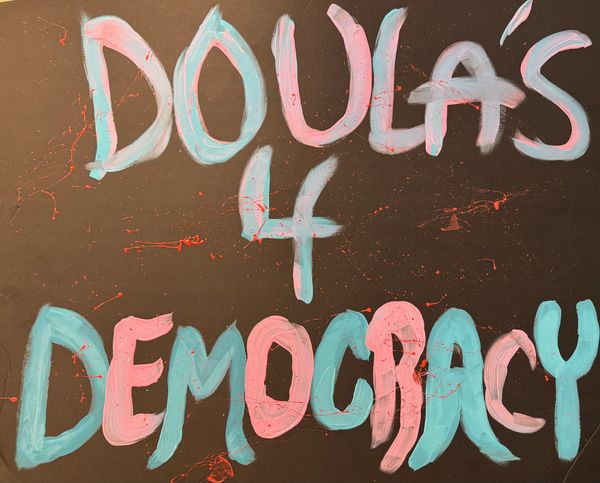 DOULA'S
4
DEMOCRACY